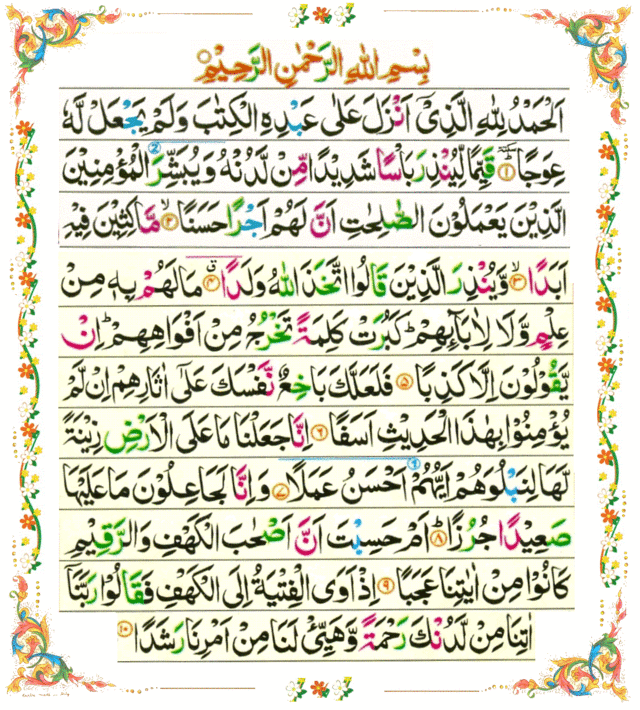 بِسْمِ اللهِ الرَّحْمٰنِ الرَّحِيْمِ
اَلْحَمْدُ لِلّٰهِ الَّذِيْۤ اَنْزَلَ عَلٰى عَبْدِهِ الْكِتٰبَ وَلَمْ يَجْعَلْ لَّهٗ
عِوَجًا ؕ ۱ قَيِّمًا لِّيُنْذِرَ بَاْسًا شَدِيْدًا مِّنْ لَّدُنْهُ وَ يُبَشِّرَ الْمُؤْمِنِيْنَ
الَّذِيْنَ يَعْمَلُوْنَ الصّٰلِحٰتِ اَنَّ لَهُمْ اَجْرًا حَسَنًا ۙ ۲ مَّاكِثِيْنَ فِيْهِ
اَبَدًا ۙ ۳ وَّ يُنْذِرَ الَّذِيْنَ قَالُوا اتَّخَذَ اللّٰهُ وَلَدًا ۗ ۴ مَا لَهُمْ بِهٖ مِنْ
عِلْمٍ وَّلَا لِاٰبَآئِهِمْ ؕ كَبُرَتْ كَلِمَةً تَخْرُجُ مِنْ اَفْوَاهِهِمْ ؕ اِنْ
يَّقُوْلُوْنَ اِلَّا كَذِبًا ۵ فَلَعَلَّكَ بَاخِعٌ نَّفْسَكَ عَلٰۤى اٰثَارِهِمْ اِنْ لَّمْ
يُؤْمِنُوْا بِهٰذَا الْحَدِيْثِ اَسَفًا ۶ اِنَّا جَعَلْنَا مَا عَلَى الْاَرْضِ زِيْنَةً
لَّهَا لِنَبْلُوَهُمْ اَيُّهُمْ اَحْسَنُ عَمَلًا ۷ وَ اِنَّا لَجَاعِلُوْنَ مَا عَلَيْهَا
صَعِيْدًا جُرُزًا ؕ ۸ اَمْ حَسِبْتَ اَنَّ اَصْحٰبَ الْكَهْفِ وَ الرَّقِيْمِ
كَانُوْا مِنْ اٰيٰتِنَا عَجَبًا ۹ اِذْ اَوَى الْفِتْيَةُ اِلَى الْكَهْفِ فَقَالُوْا رَبَّنَاۤ
اٰتِنَا مِنْ لَّدُنْكَ رَحْمَةً وَّهَيِّئْ لَنَا مِنْ اَمْرِنَا رَشَدًا ۱۰